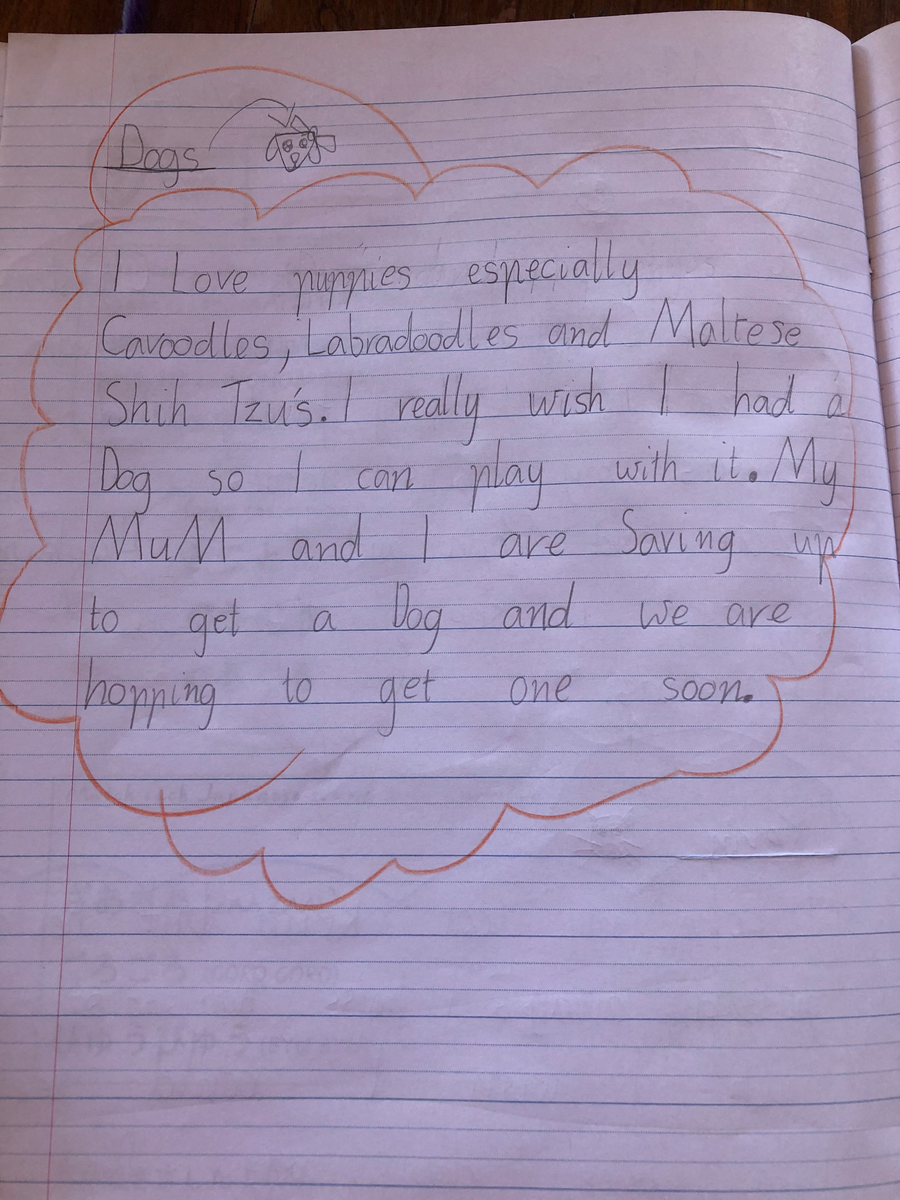 Dogs
I Love puppies especially
Cavoodles, Labradoodles and Maltese
Shih Tzu's. I really wish I had a
Dog so I can play with it. My
MuM and I are Saving up
to get a Dog and we are
hopping to get one soon.